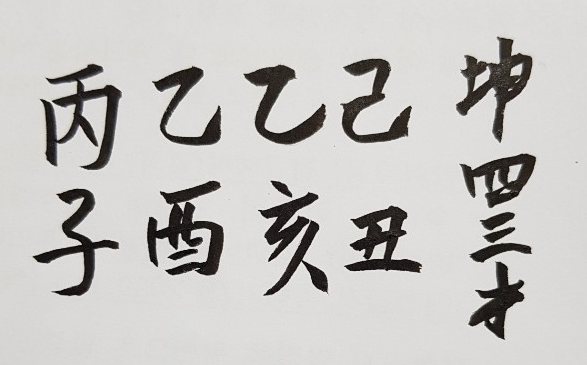 坤四三才
己丑
乙亥
乙酉
丙子